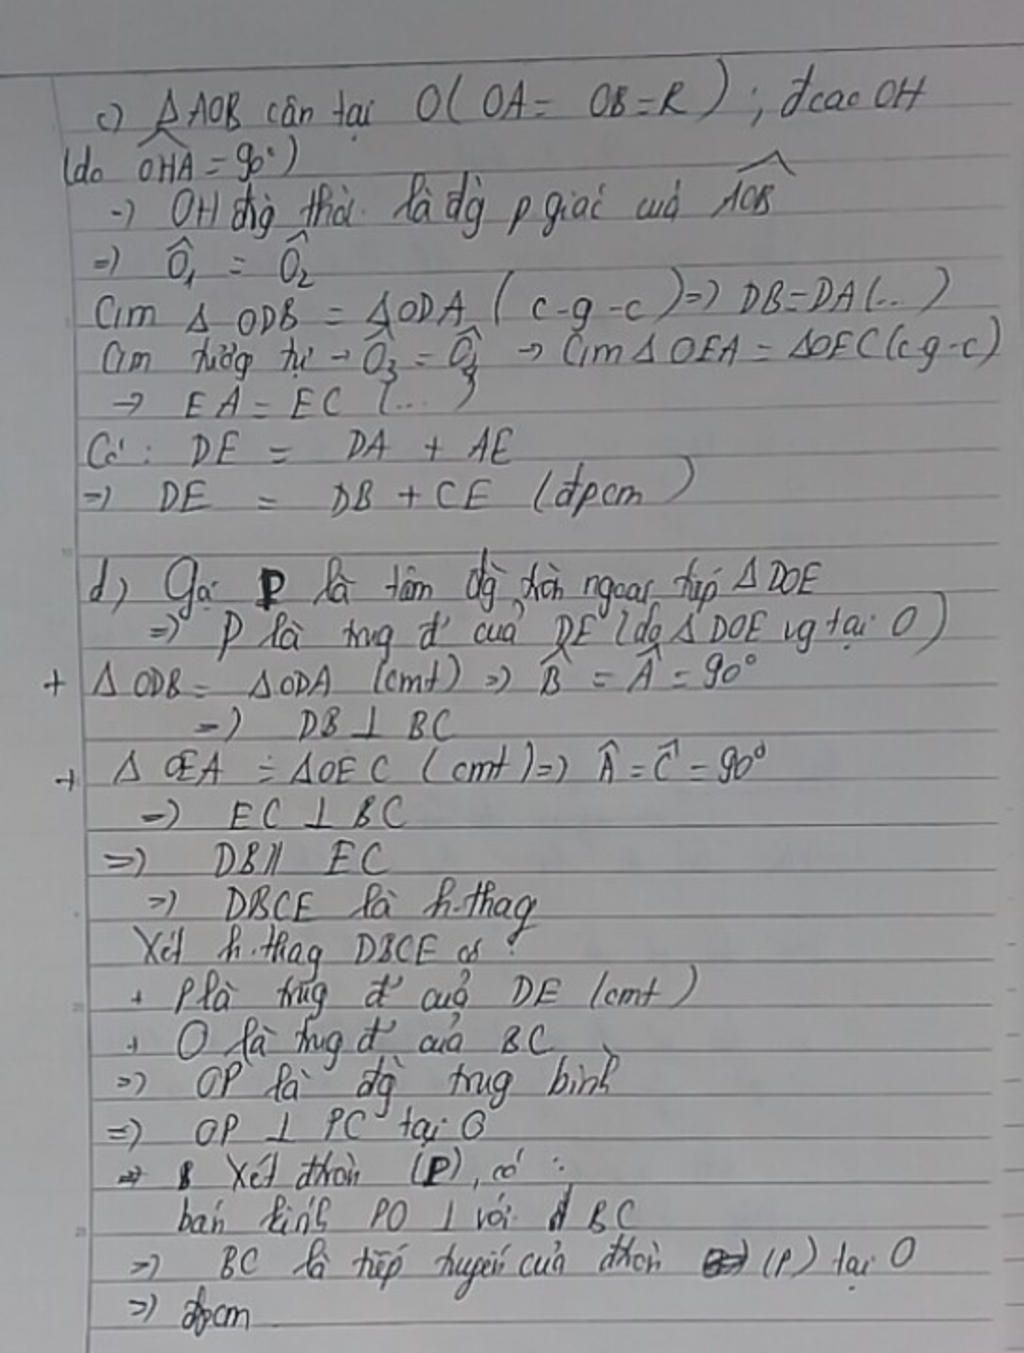 c) Δ AOB cân tại O( OA = OB = R ) ; đcao OH
(do OHA = 90°)
-) OH đg thời là đg p giác của AOB
=) Ô₁ = Ô₂
Cm Δ ODB = Δ ODA ( c-g-c) =) DB = DA (...)
Cm tương tự → Ô₃ = Ô₄ → Cm Δ OEA = ΔOEC (c g-c)
→ EA = EC (...)
Có : DE = DA + AE
=) DE = DB + CE (đpcm)
d) Gọi P là tâm đg tròn ngoại tiếp Δ DOE
=) P là trug đ' của DE (do Δ DOE vg tại O)
+ Δ ODB = Δ ODA (cmt) =) B̂ = Â = 90°
=) DB ⊥ BC
+ Δ OEA = ΔOEC (cmt) =) Â = Ĉ = 90°
=) EC ⊥ BC
=) DB // EC
=) DBCE là h.thag
Xét h.thag DBCE có :
+ P là trug đ' của DE (cmt)
+ O là trug đ' của BC
=) OP là đg trug bình
=) OP ⊥ PC tại O
Xét đtròn (P), có :
bán kính PO ⊥ với BC
=) BC là tiếp tuyến của đtròn (P) tại O
=) đpcm